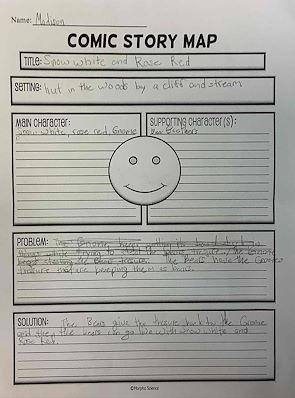 Name: Madison
COMIC STORY MAP
TITLE: Snow white and Rose Red
SETTING: hut in the woods by a cliff and stream
MAIN CHARACTER:
Snow white, rose red, Gnome
SUPPORTING CHARACTER(S):
Bear Brothers
PROBLEM: The
The Bears have the Gnomes
treasure that are keeping them as bears.
SOLUTION: The Bears give the tresure back to the Gnome
and then the bears can go live with snow white and
Rose Red.